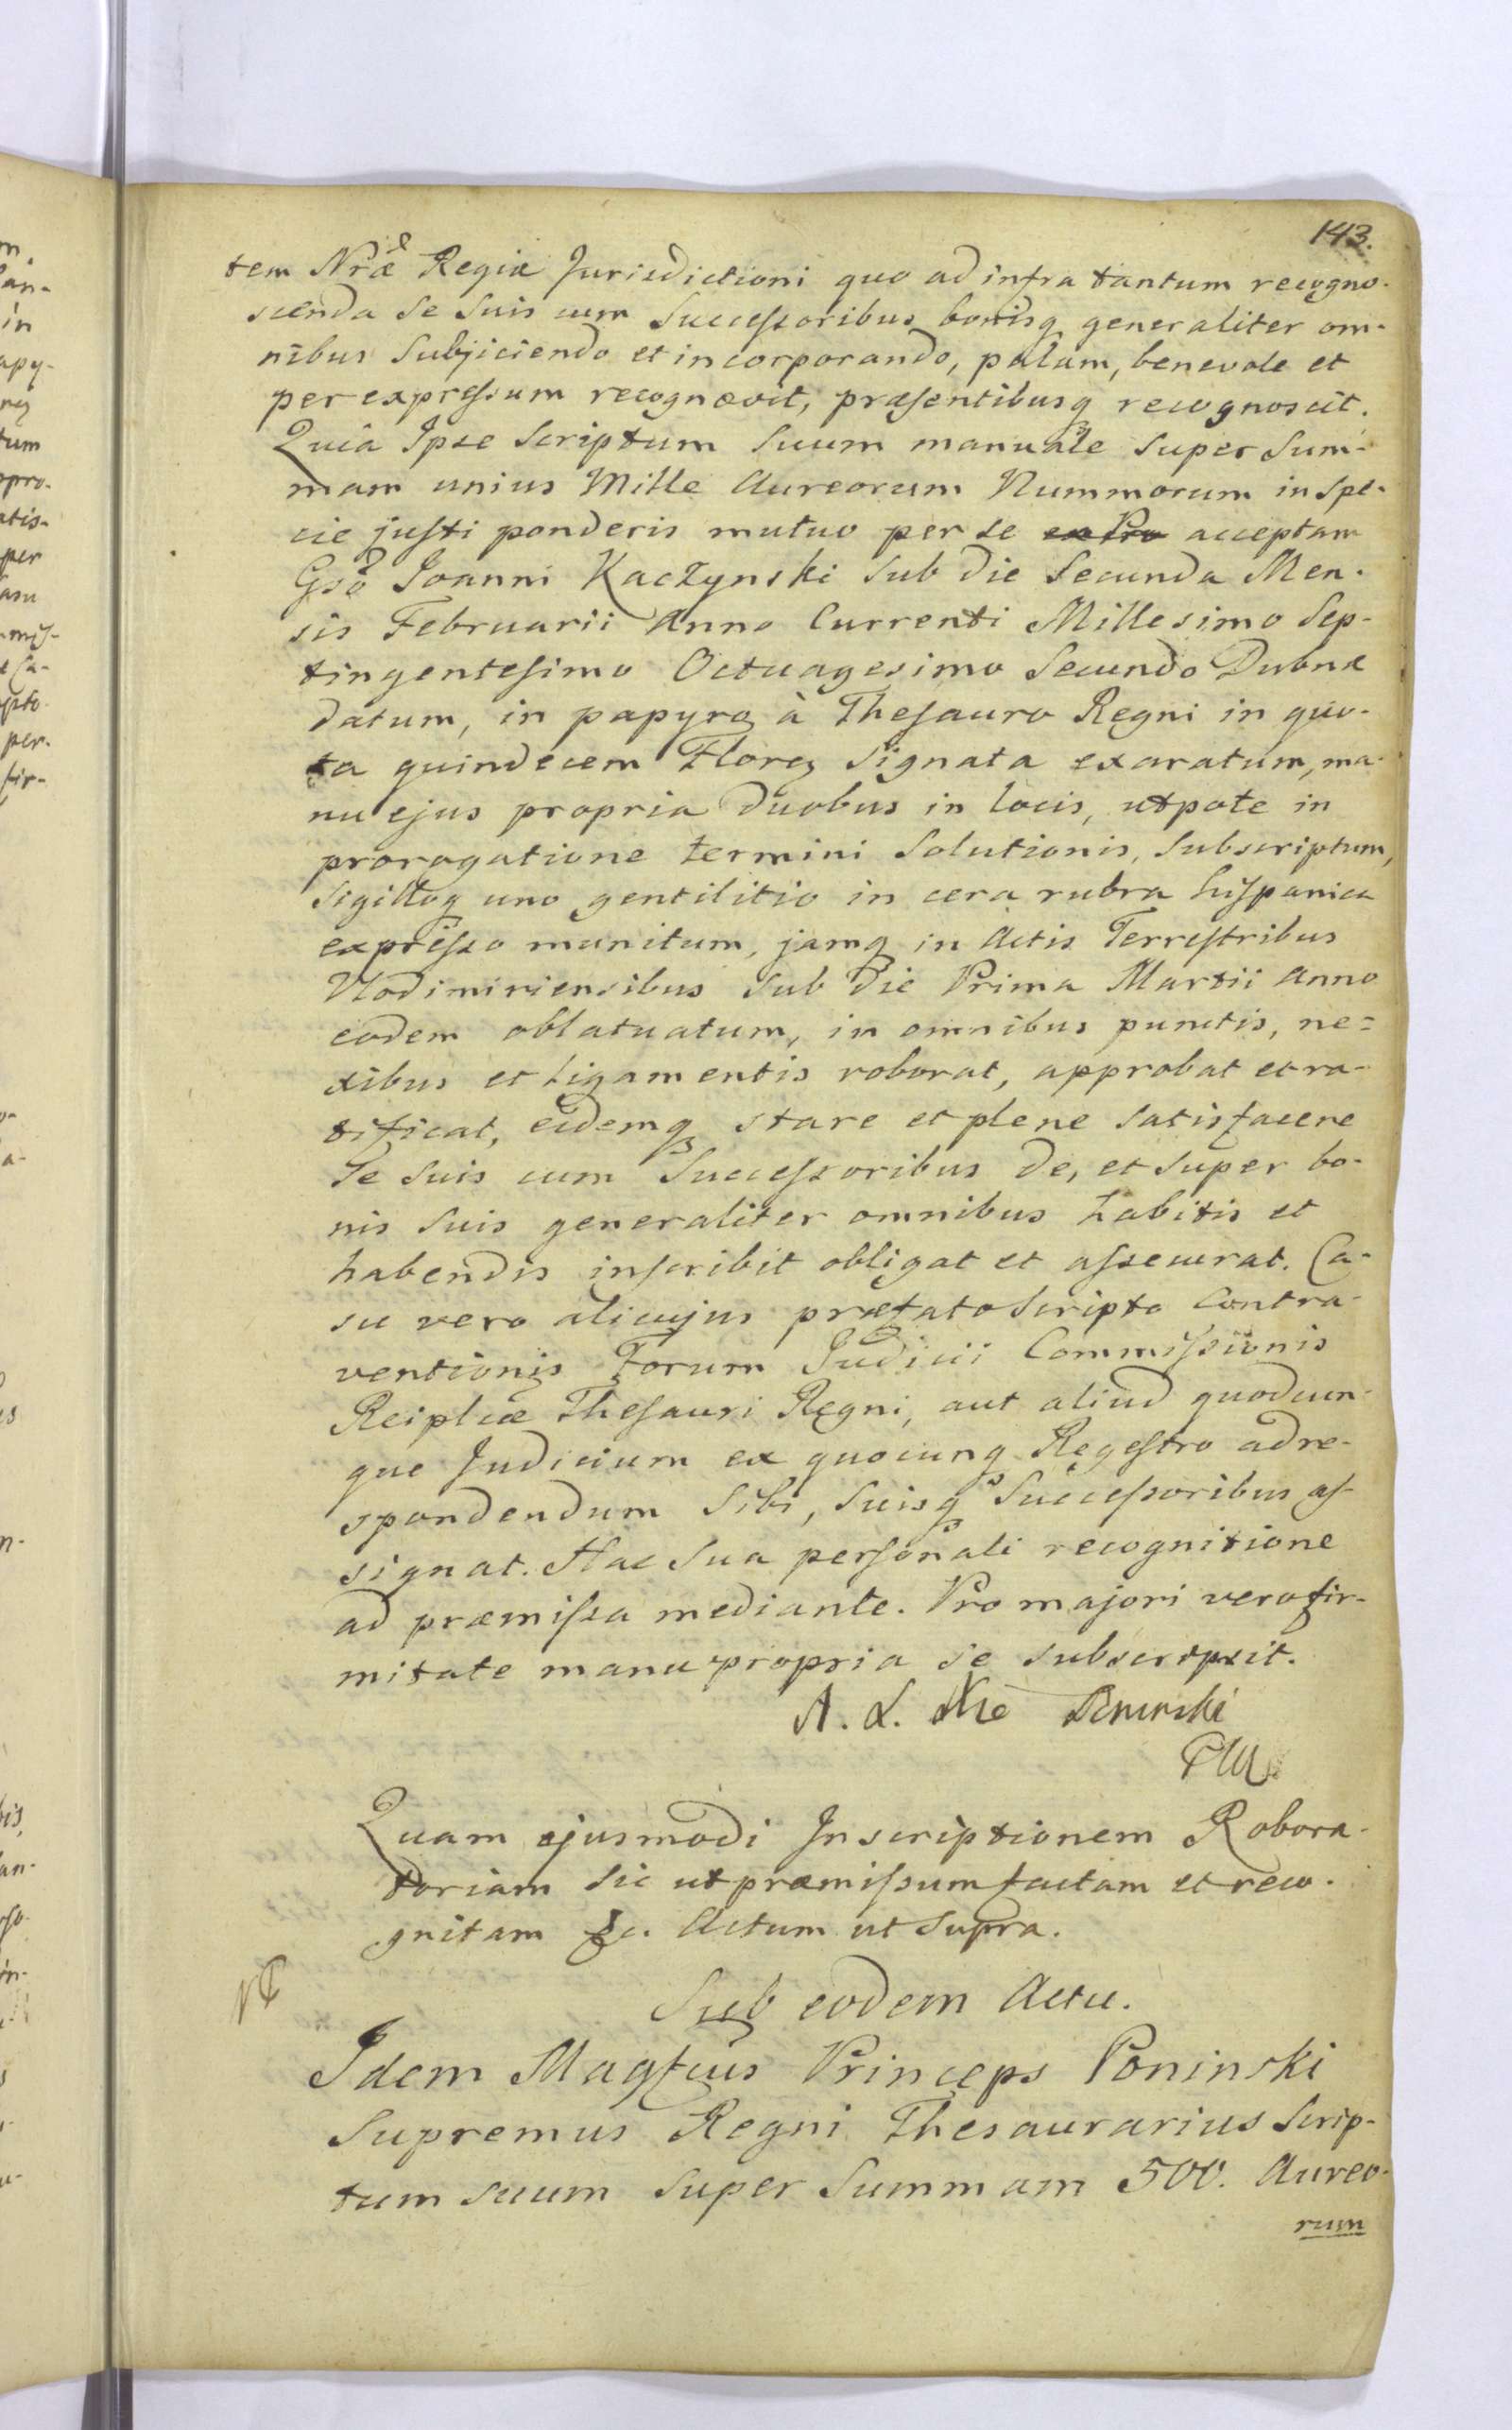 143.
tem Nræ Regiæ Jurisdictioni quo ad infra tantum recogno-
scenda se suis cum Successoribus bonisq generaliter om-
nibus subjiciendo et incorporando, palam, benevole et
per expressum recognovit, præsentibusq recognoscit.
Quia Ipse Scriptum Suum manuale Super Sum-
mam unius Mille Aureorum Nummorum in Spe-
cie justi ponderis mutuo per se acceptam
Gso Joanni Kaczynski sub die Secunda Men-
sis Februarii Anno Currenti Millesimo Sep-
tingentesimo Octuagesimo Secundo Dubnæ
datum, in papyro à Thesauro Regni in quo-
ta quindecem Floreg signata exaratum, ma-
nu ejus propria duobus in locis, utpote in
prorogatione termini Solutionis, Subscriptum,
Sigilloq uno gentilitio in cera rubra hispanica
expresso munitum, jamq in Actis Terrestribus
Vlodimiriensibus sub die Prima Martii Anno
eodem oblatuatum, in omnibus punctis, ne=
xibus et ligamentis roborat, approbat et ra-
tificat, eidemq stare et plene satisfacere
Se suis cum Successoribus de, et super bo-
nis suis generaliter omnibus habitis et
habendis inscribit obligat et assecurat. Ca-
su vero alicujus præfato Scripto Contra-
ventionis Forum Judicii Commissionis
Reiplicæ Thesauri Regni, aut aliud quodcun-
que Judicium ex quocunq Regestro ad re-
spondendum Sibi, Suisq Successoribus as-
signat. Hac Sua personali recognitione
ad præmissa mediante. Pro majori vero fir-
mitate manu propria se subscripsit.
A. L. Xże Poninski
Quam ejusmodi Inscriptionem Robora-
toriam sic ut præmissum factam et reco-
gnitam &c. Actum ut Supra.
Sub eodem Actu.
Idem Magfcus Princeps Poninski
Supremus Regni Thesaurarius Scrip-
tum suum Super Summam 500. Aureo-
rum